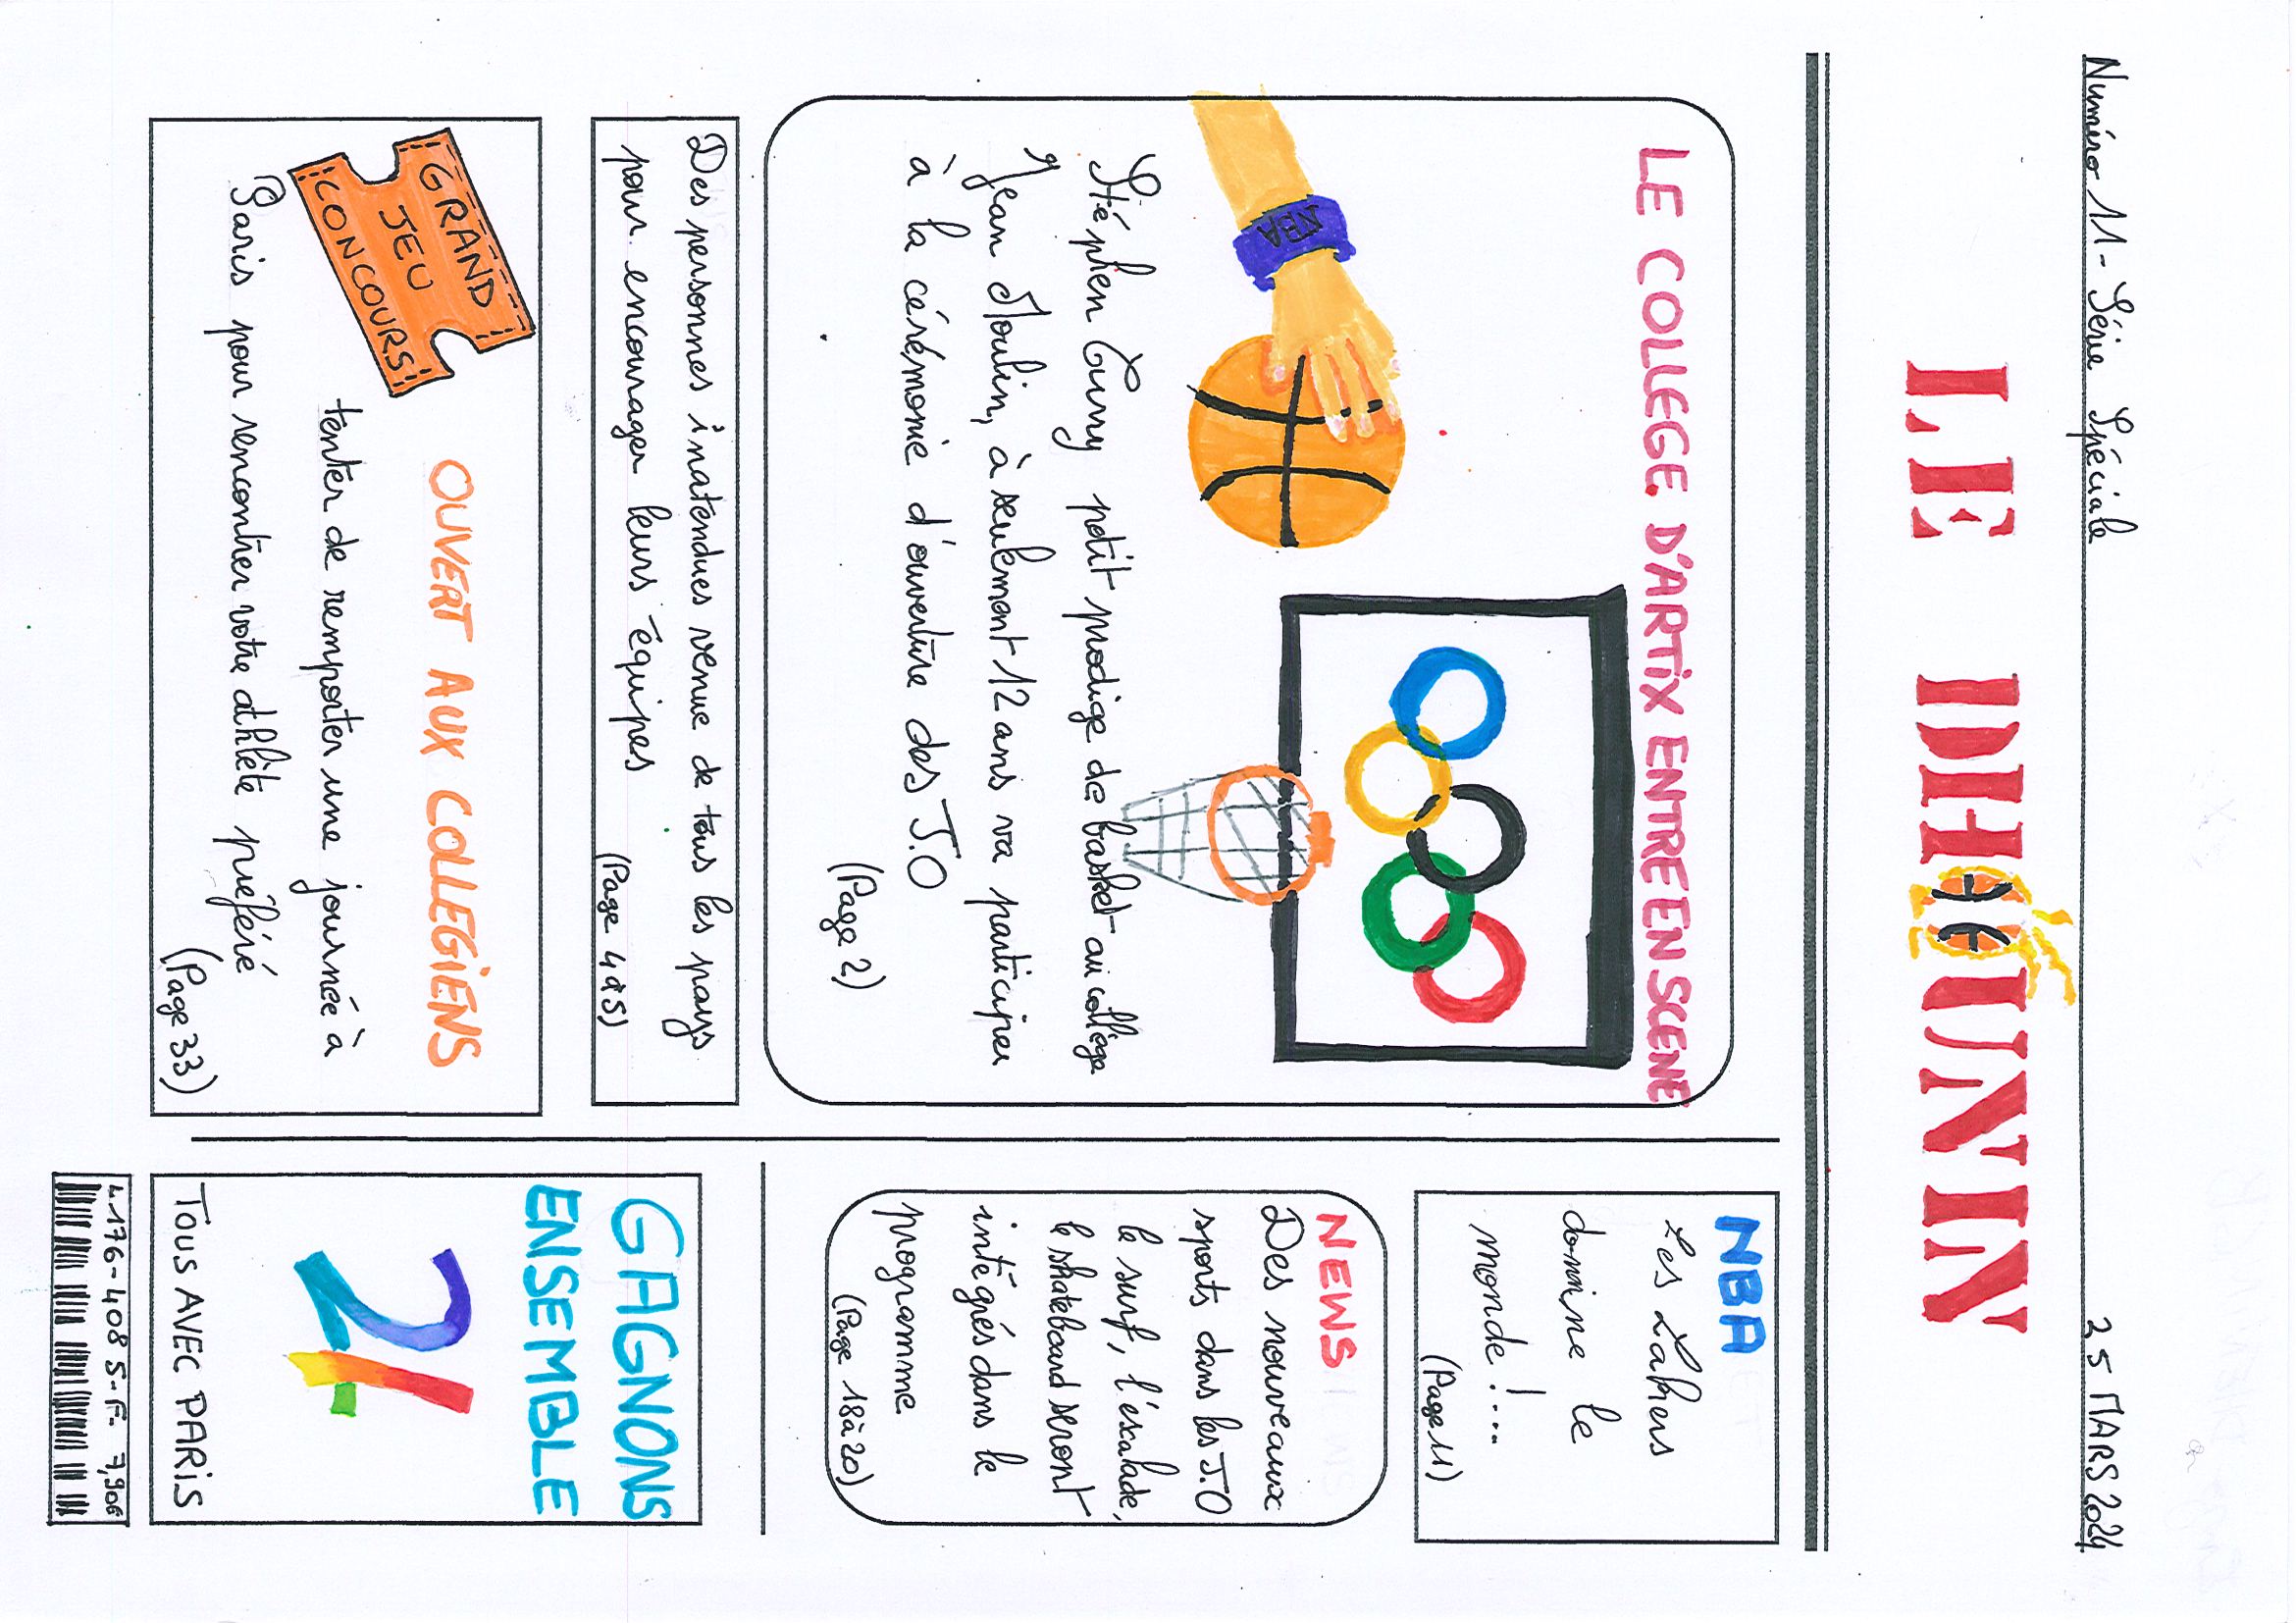 Numéro 11 - Série Spéciale
25 MARS 2024
LE DHOUNIN
LE COLLEGE D'ARTIX ENTRE EN SCENE
NBA
Stéphen Curry petit prodige de basket au collège
Jean Moulin, à seulement 12 ans va participer
à la cérémonie d'ouverture des J.O
(Page 2)
Des personnes inatendues venue de tous les pays
pour encourager leurs équipes
(Page 4à5)
GRAND
JEU
CONCOURS
OUVERT AUX COLLEGIENS
tenter de remporter une journée à
Paris pour rencontrer votre athlète préféré
(Page 33)
NBA
Les Lakers
domine le
monde !....
(Page 11)
NEWS
Des nouveaux
sports dans les J.O
le surf, l'éscalade,
le skateboard seront
intégrés dans le
programme
(Page 18à20)
GAGNONS
ENSEMBLE
24
TOUS AVEC PARIS
4.176-408 5-F- 7,90€